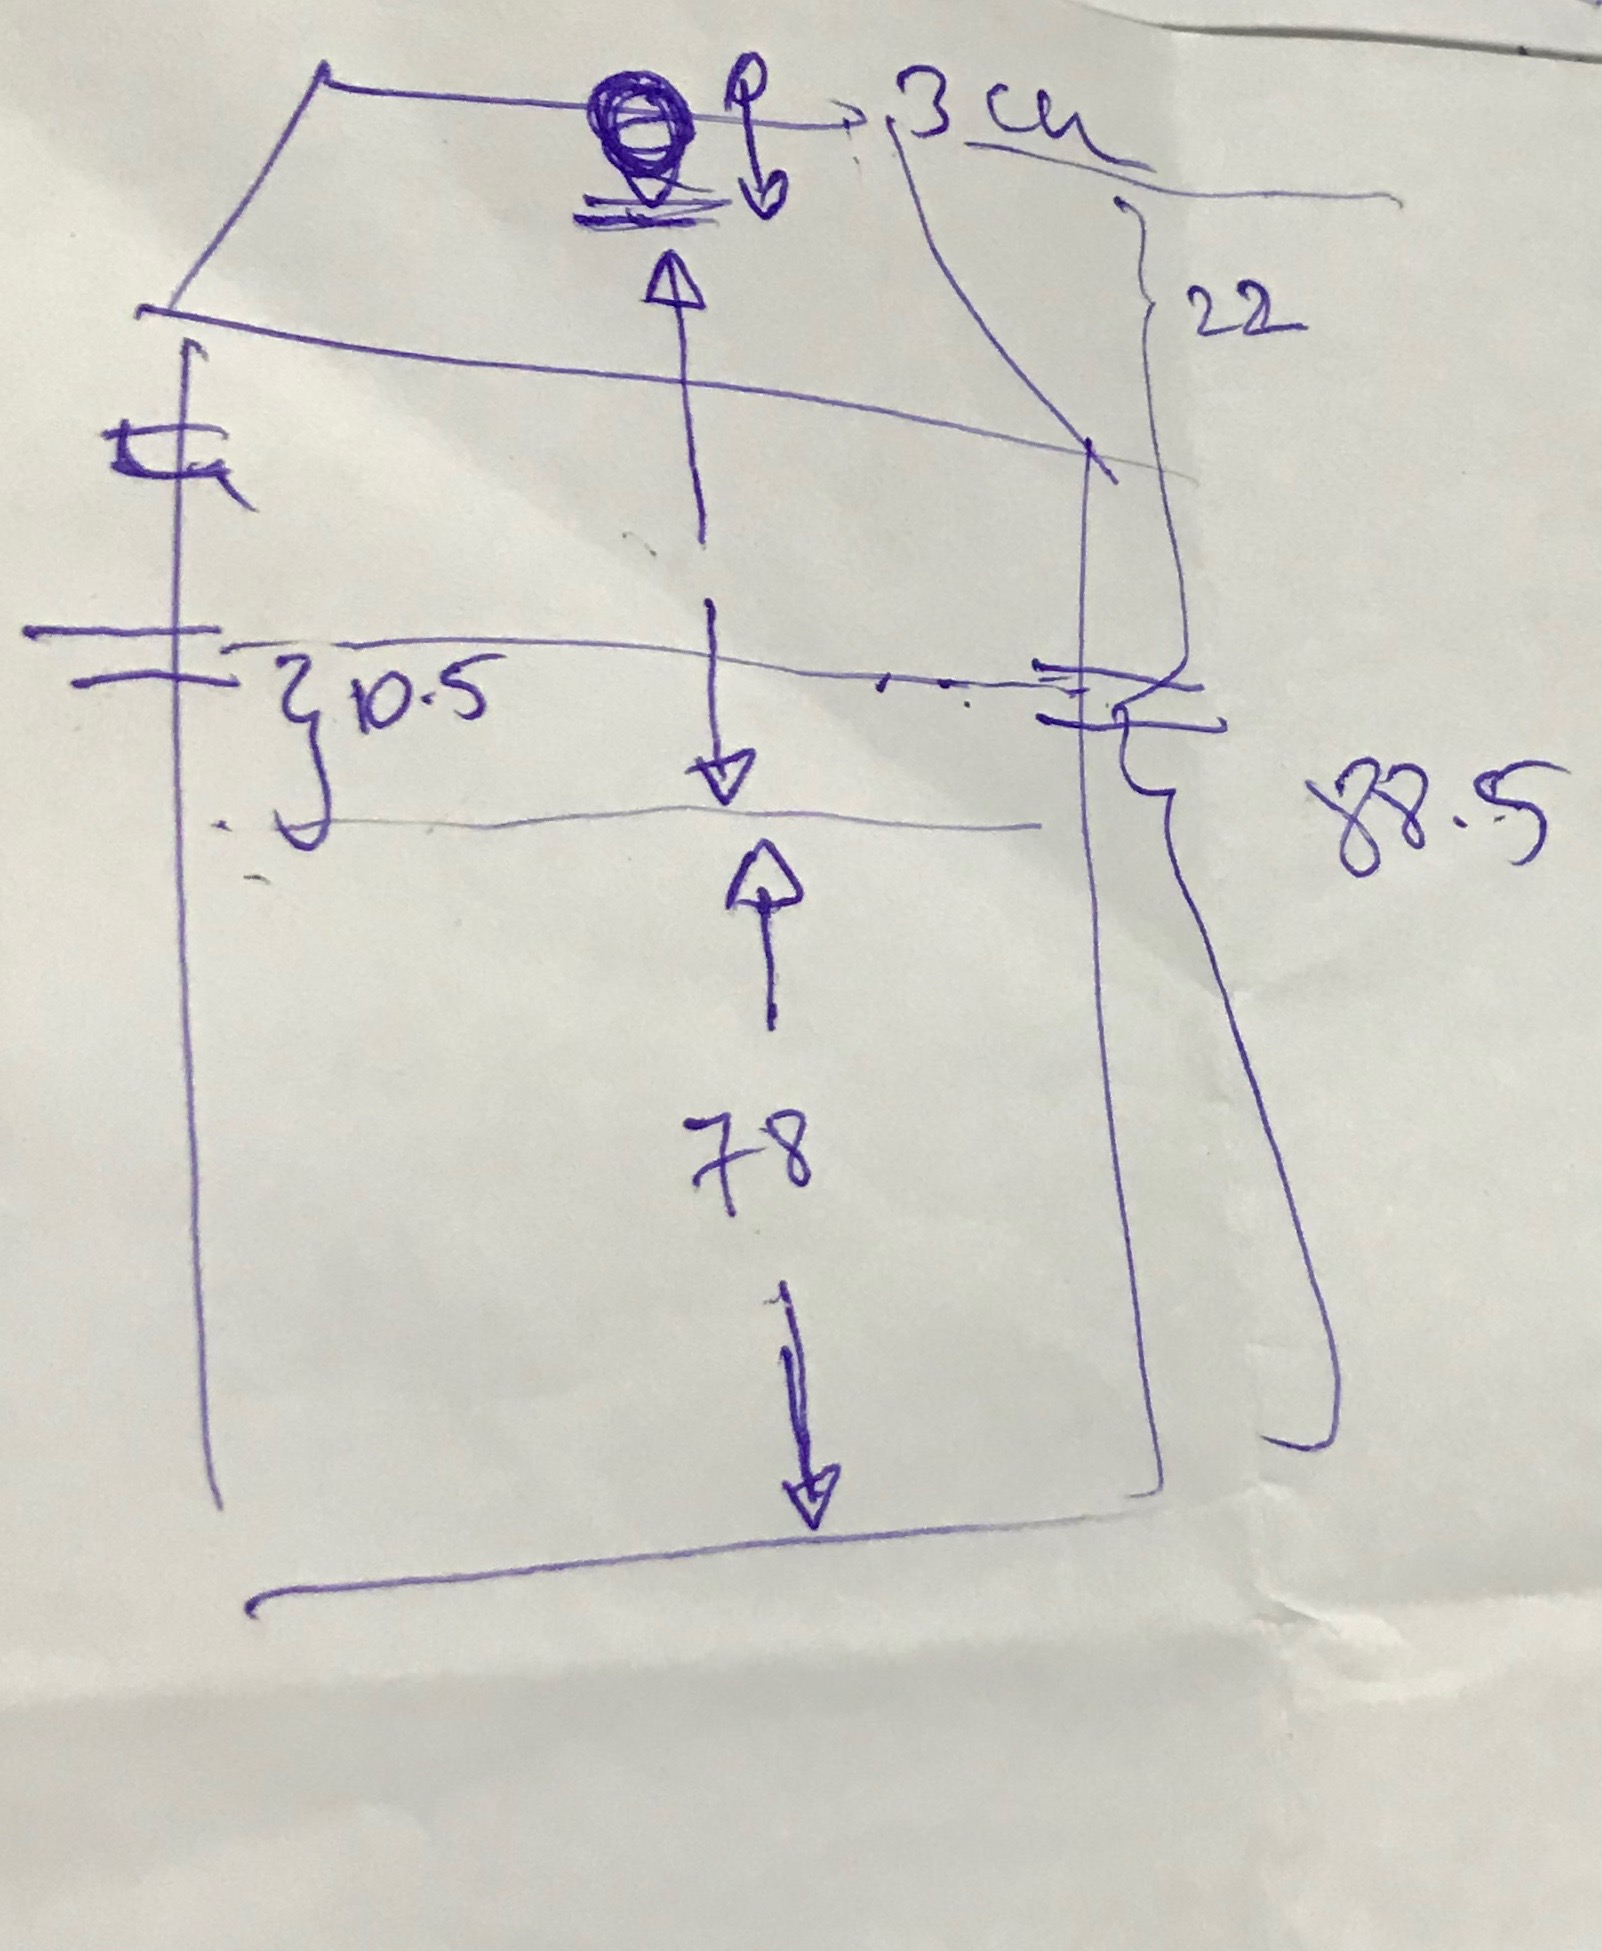 3 cm
22
10.5
88.5
78